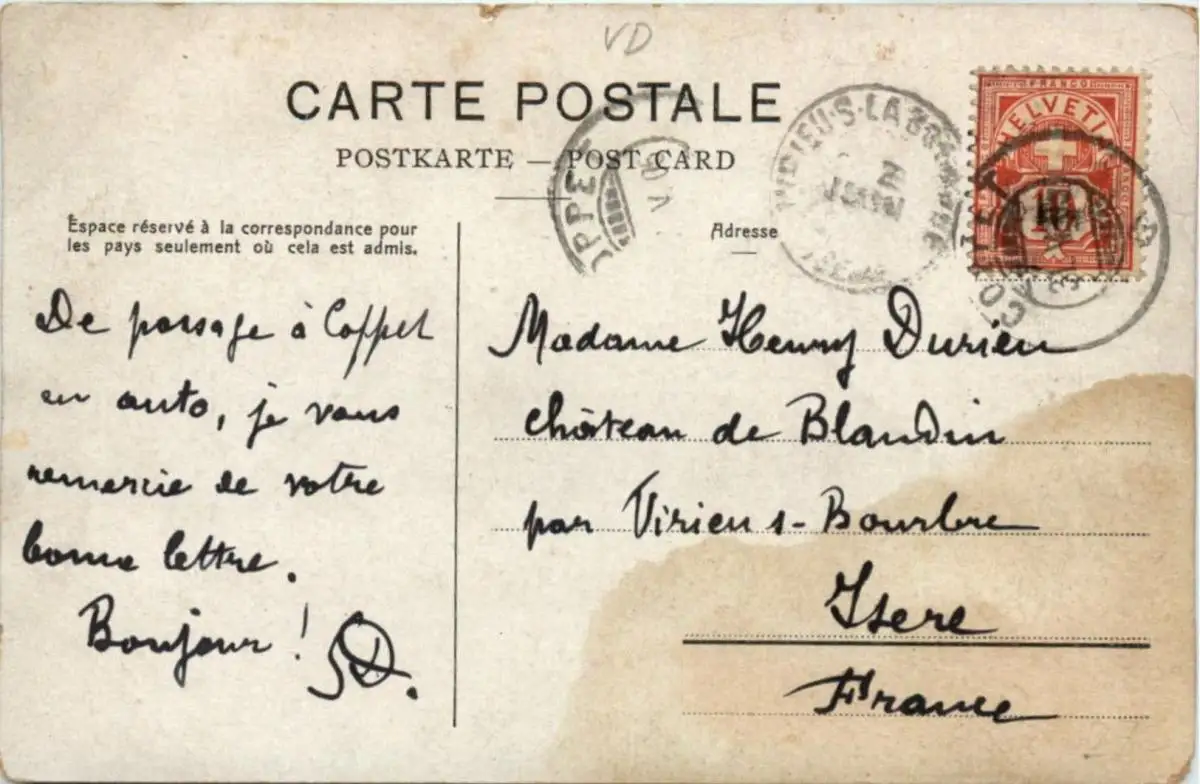 VD
CARTE POSTALE
POSTKARTE — POST CARD
Espace réservé à la correspondance pour
les pays seulement où cela est admis.
Adresse
FRANCO
HELVETIA
10
COPPET
VIRIEU-S-LA BOURBRE
2
JUIN
ISÈRE
De passage à Coppet
en auto, je vous
remercie de votre
bonne lettre.
Bonjour !
SD.
Madame Henry Durieu
château de Blandin
par Virieu s-Bourbre
Isere
France